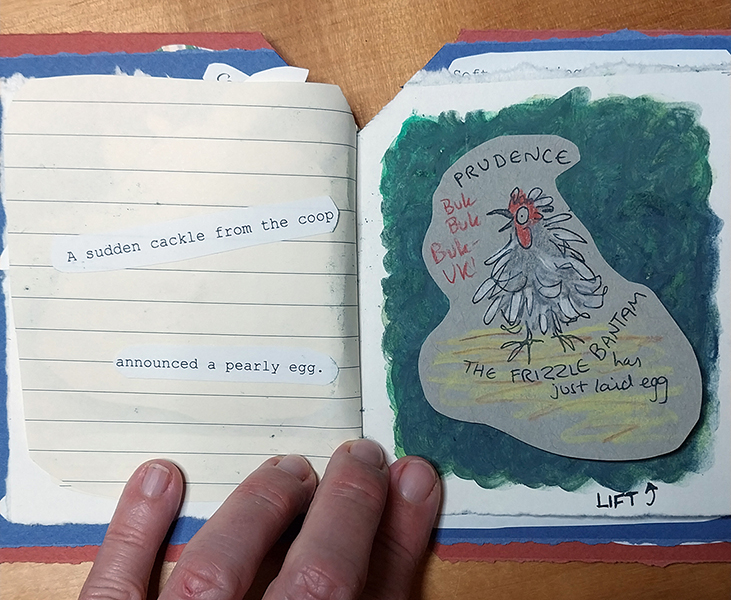 A sudden cackle from the coop
announced a pearly egg.
PRUDENCE
Buk
Buk
Buk-
UK!
THE FRIZZLE BANTAM has
just laid egg
LIFT